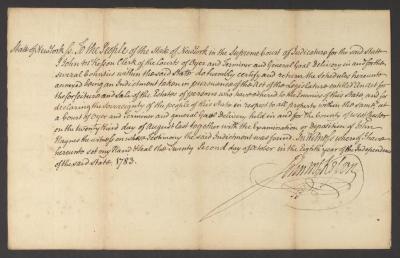 State of New York Ss. To the People of the State of New York in the Supreme Court of Judicature for the said State
I John McKesson Clerk of the Courts of Oyer and Terminer and General Goal Delivery in and for the
several Counties within the said State do humbly certify and return the Schedules hereunto
annexed being an Indictment taken in pursuance of the Act of the Legislature entitled "an Act for
the forfeiture and Sale of the Estates of persons who have adhered to the Enemies of this State and for
declaring the Sovereignty of the people of this State in respect to all property within the same," at
a Court of Oyer and Terminer and general Goal delivery held in and for the County of West Chester
on the twenty third day of August last together with the Examination or deposition of John
the witness on whose Testimony the said Indictment was found. In Witness whereof I have
hereunto set my Hand & Seal this Twenty Second day of October in the eighth year of the Independence
of the said State 1783.
John McKesson